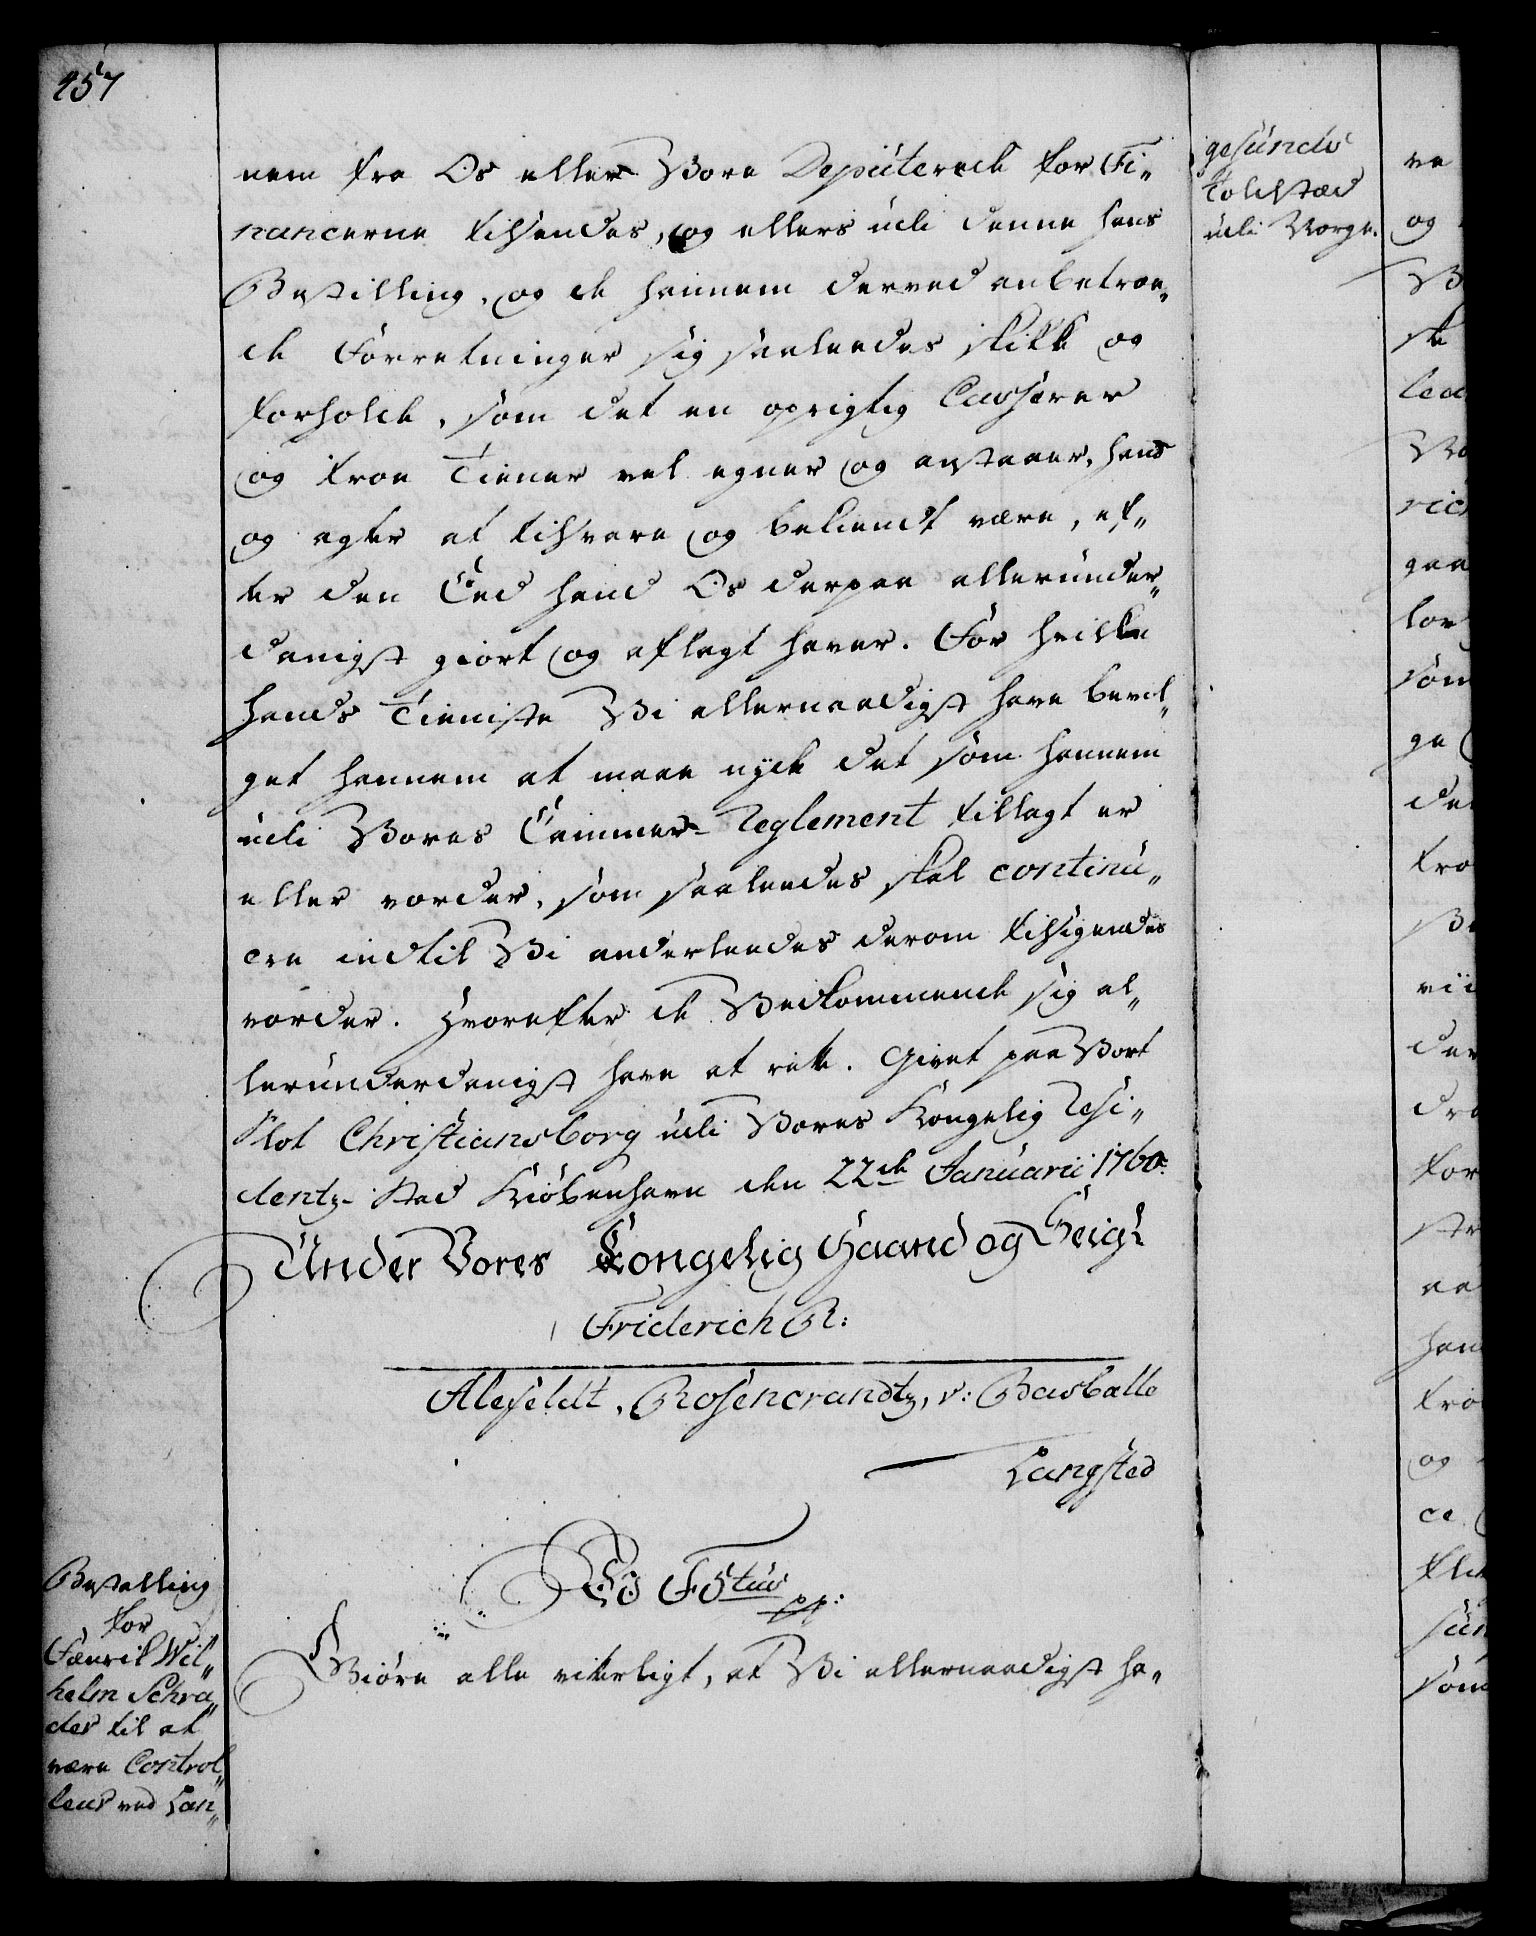 457
nem fra Os eller Vore Deputerede for Fi„
nancerne tilsendes, og ellers udi denne hans
Bestilling, og de hannem derved anbetroe„
de Forretninger sig saaledes skikke og
forholde, som det en oprigtig Casserer
og troe Tiener vel egner og anstaaer, hand
og agter at tilsvare og bekiendt være, ef„
ter den Eed hand Os derpaa allerunder„
danigst giort og aflagt haver. For hvilke
hands Tieniste Vi allernaadigst have bevil„
get hannem at maae nyde det som hannem
udi Vores Cammer-Reglement tillagt er
eller vorder, som saaledes skal continu„
ere indtil Vi anderledes derom tilsigendes
vorder. Hvorefter de Vedkommende sig al„
lerunderdanigst have at rette. Givet paa Vort
Slot Christiansborg udi Vores Kongelig Resi„
dentz-Stad Kiöbenhavn den 22de Januarii 1760.
Under Vores Kongelig Haand og Seigl
Friderich R:
Alefeldt, Rosencrandtz, v: Basballe
Langsted
Bestalling
for
Fænrik Wil„
helm Schra„
der til at
være Control„
leur ved Lan„
Vo F5tus
pp:
Giöre alle viterligt, at Vi allernaadigst ha„
gesunds
Toldsted
udi Norge.
ve
og
ske
som
ge
for
og
som